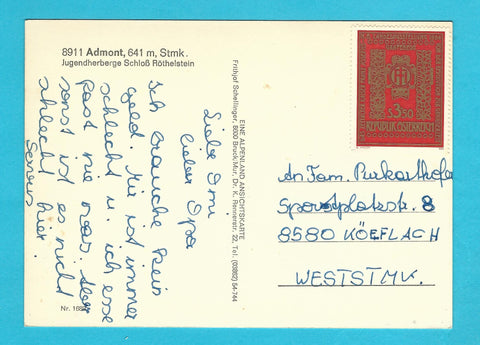 8911 Admont, 641 m, Stmk.
Jugendherberge Schloß Röthelstein
Liebe Omi
lieber Opa
Ich brauche kein
geld. Mir ist immer
schlecht u. ich esse
fast nie was. Aber
sonst ist es nicht
schlecht hier.
Servus
Nr. 168
EINE ALPENLAND ANSICHTSKARTE
Frithjof Schellinger, 8600 Bruck/Mur, Dr. K. Rennerstr. 22, Tel. (03862) 54-744
S 3.50
REPUBLIK ÖSTERREICH
An Fam. Purkarthofer
Sportplatzstr. 8
8580 KÖEFLACH
WESTSTMK.